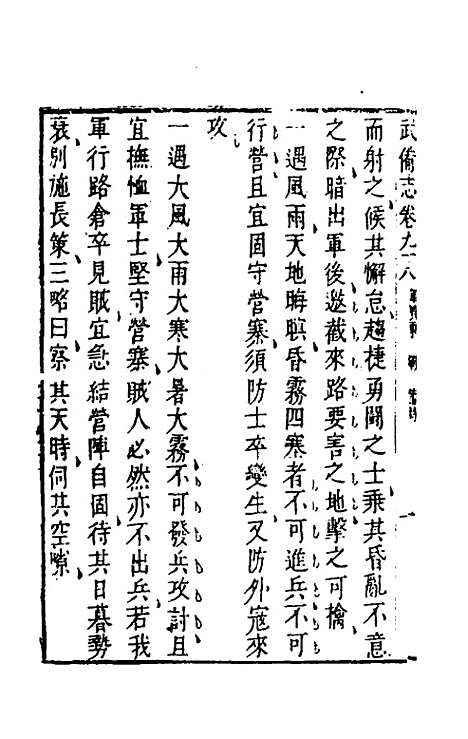 武備志卷九十八
而射之候其懈怠趫捷勇鬬之士乗其昏亂不意
之際暗出軍後邀截來路要害之地擊之可擒
一遇風雨天地晦暝昏霧四塞者不可進兵不可
行營且宜固守營寨須防士卒變生又防外寇來
攻
一遇大風大雨大寒大暑大霧不可發兵攻討且
宜撫恤軍士堅守營寨賊人必然亦不出兵若我
軍行路倉卒見賊宜急結營陣自固待其日暮勢
衰別施長策三略曰察其天時伺其空隙